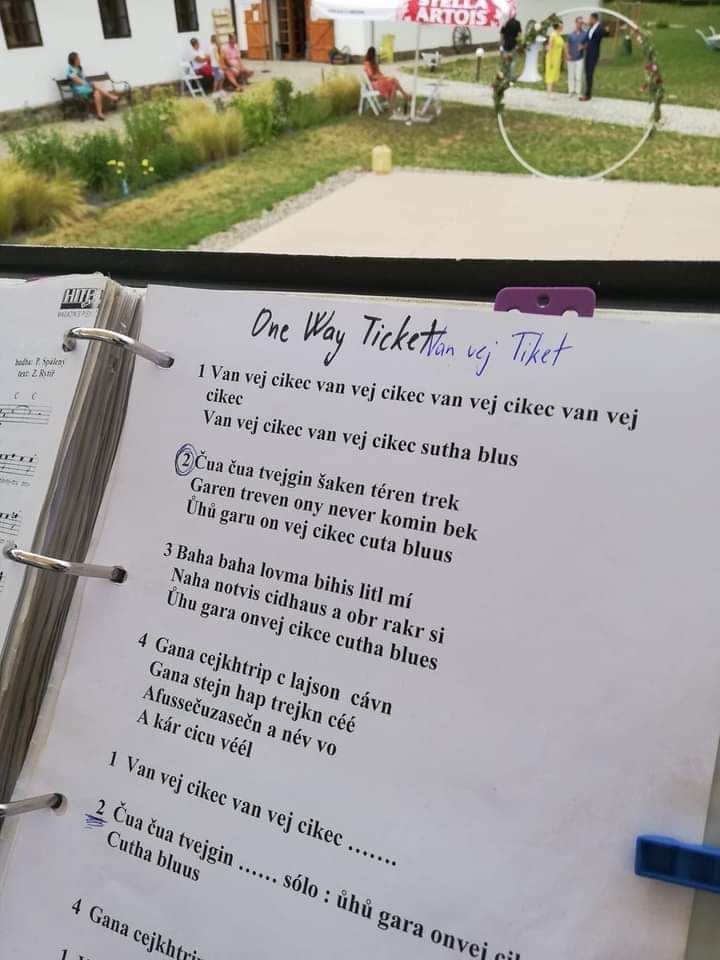 STELLA
ARTOIS
HITE
MAGAZÍN S PÍSN
hudba: P. Spálený
text: Z. Rytíř
C C
One Way Ticket Van vej Tiket
1 Van vej cikec van vej cikec van vej cikec van vej
cikec
Van vej cikec van vej cikec sutha blus
2 Čua čua tvejgin šaken téren trek
Garen treven ony never komin bek
Ůhů garu on vej cikec cuta bluus
3 Baha baha lovma bihis litl mí
Naha notvis cidhaus a obr rakr si
Ůhu gara onvej cikce cutha blues
4 Gana cejkhtrip c lajson cávn
Gana stejn hap trejkn céé
Afussečuzasečn a név vo
A kár cicu véél
1 Van vej cikec van vej cikec …….
2 Čua čua tvejgin …… sólo : ůhů gara onvej cik
Cutha bluus
4 Gana cejkhtrip
1